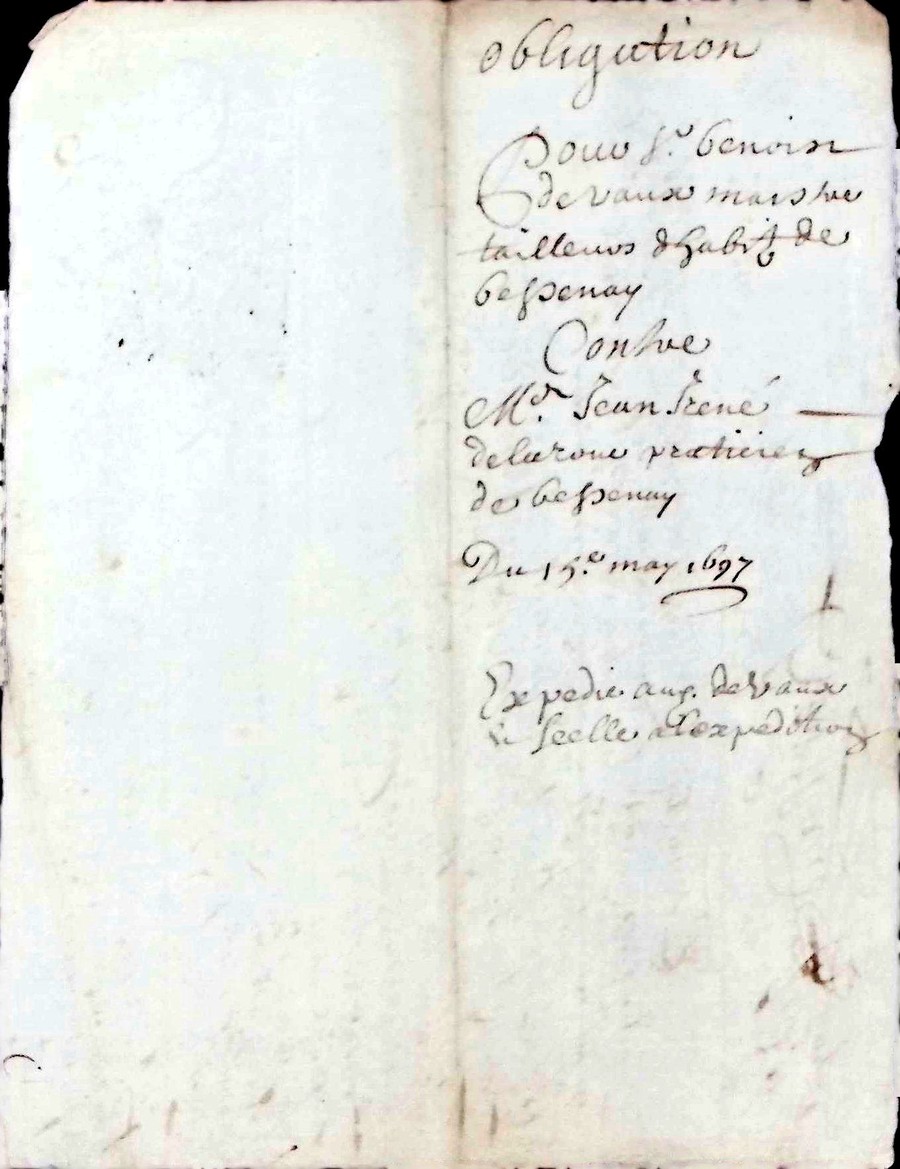 obligation
Pour Sr. benoist
devaux maistre
tailleurs dhabitz de
bessenay
Contre
Me. Jean Irené
delaroue praticien
de bessenay
Du 15e. may 1697
Expedié aud. devaux
Scelle a lexpedition